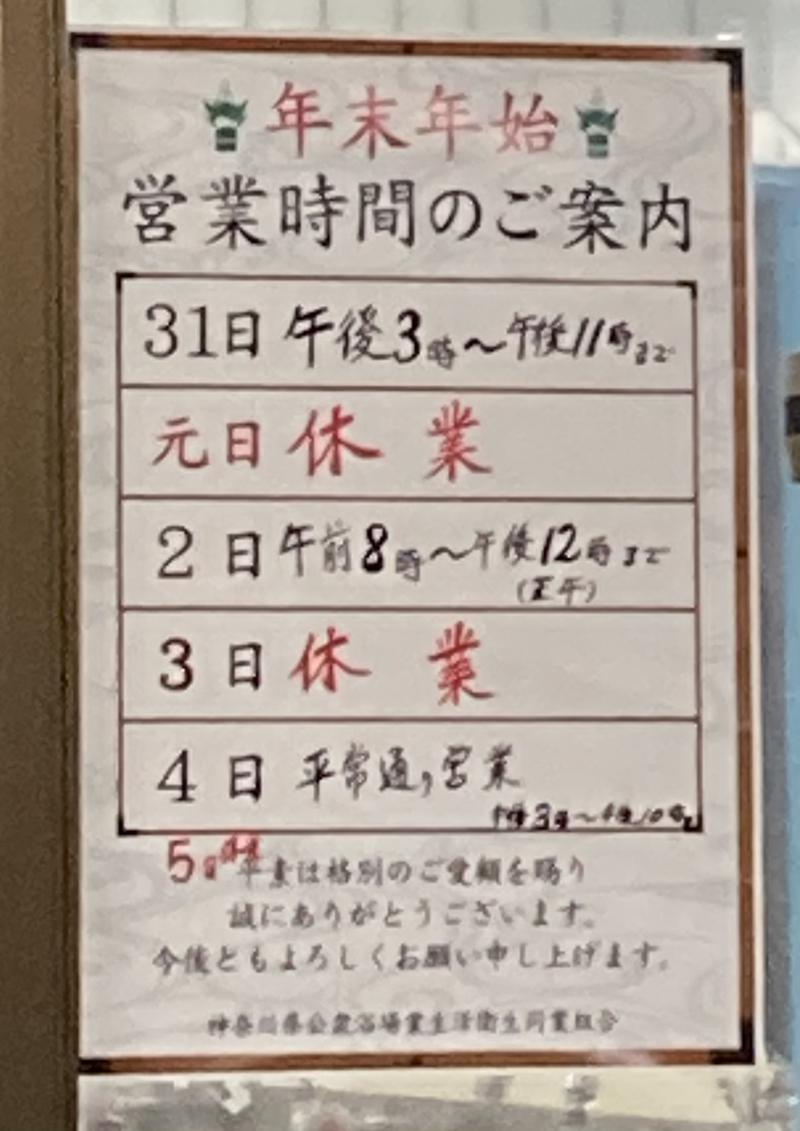 年末年始
営業時間のご案内
31日 午後3時〜午後11時まで
元日 休業
2日 午前8時〜午後12時まで
(正午)
3日 休業
4日 平常通り営業
午後3時〜午後10時
5日
平素は格別のご愛顧を賜り
誠にありがとうございます。
今後ともよろしくお願い申し上げます。
神奈川県公衆浴場業生活衛生同業組合